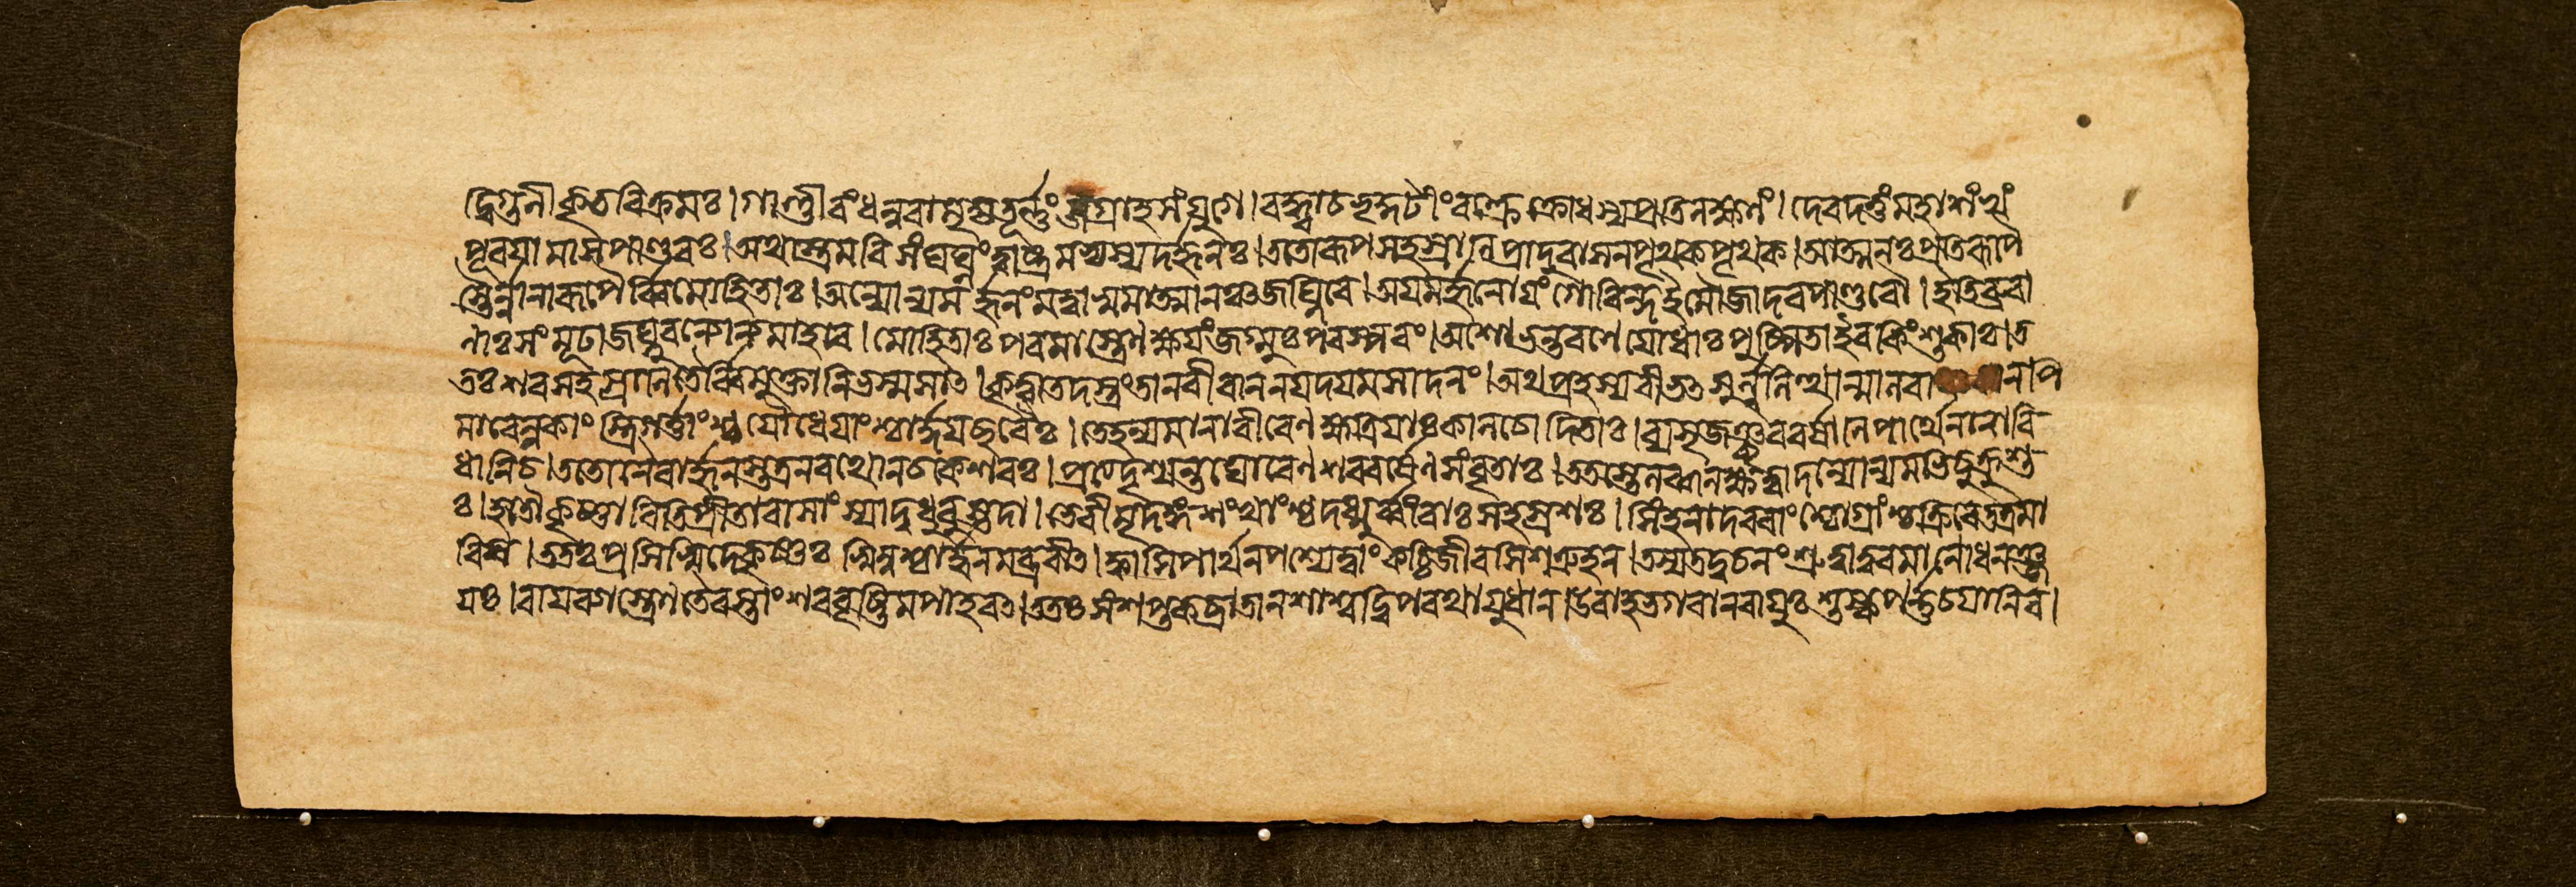 দ্বিগুনীকৃতবিক্রমঃ।গাণ্ডীবংধন্নবামৃষ্যতূর্ণ্ণংজগ্রাহসংযুগে।বদ্ধ্বাচভৃকুটীংবক্ত্রেক্রোধস্যপ্রতিলক্ষণং।দেবদত্তংমহাশংখং
পূরয়ামাসপাণ্ডবঃ।অথাস্ত্রমরিসংঘঘ্নংত্বাষ্ট্রমভ্যস্যদর্জ্জুনঃ।ততোরূপসহস্রানিপ্রাদুরাসনপৃথকপৃথক।আত্মনঃপ্রতিরূপৈ
স্তৈর্ন্নানারূপৈর্ব্বিমোহিতাঃ।অন্যোন্যমর্জ্জুনংমত্বাস্বমাত্মানঞ্চজঘ্নিরে।অয়মর্জ্জুনোয়ংগোবিন্দইমৌজাদবপাণ্ডবৌ।ইতিব্রুবা
নাঃসংমূঢাজঘ্নুরন্যোন্যমাহবে।মোহিতাঃপরমাস্ত্রেণক্ষয়ংজগ্মুঃপরস্পরং।অশোভন্তরণেযোধাঃপুষ্পিতাইবকিংশুকাঃ।ত
তঃশরসহস্রানিতৈর্ব্বিমুক্তানিভস্মসাৎ।কৃত্বাতদস্ত্রংতানবীরাননয়দযমসাদনং।অথপ্রহস্যবীভৎসুর্ল্ললিত্থান্মালবা নপি
মাবেল্লকাংস্ত্রিগর্ত্তাংশ্চযৌধেয়াংশ্চার্দ্দয়ছরৈঃ।তেহন্যমানাবীরেণক্ষত্রিয়াঃকালচোদিতাঃ।ব্যসৃজঞ্ছরবর্ষানিপার্থেনানাবি
ধানিচ।ততোনৈবার্জ্জুনস্তত্রনরথোনচকেশবঃ।প্রত্যদৃশ্যতঘোরেণশরবর্ষেণসংবৃতঃ।ততস্তেলব্ধলক্ষত্বাদন্যোন্যমভিচুক্রুশু
ঃ।হতৌকৃষ্ণাবিতিপ্রীতাবাসাংস্যাদুধুবুস্তদা।ভেরীমৃদঙ্গশংখাংশ্চদধ্মুর্ব্বীরাঃসহস্রশঃ।সিংহনাদরবাংশ্চোগ্রাংশ্চক্রিরেতত্রমা
রিষ।ততঃপ্রসিষ্বিদেকৃষ্ণঃখিন্নশ্চার্জ্জুনমব্রবীৎ।ক্বাসিপার্থনপশ্যেত্বাংকচ্চিজ্জীবসিশত্রুহন।তস্যতদ্বচনংশ্রুত্বাত্বরমানোধনঞ্জ
য়ঃ।বায়ব্যাস্ত্রেণতৈরস্তাংশরবৃষ্টিমপাহরৎ।ততঃসংশপ্তকব্রাতানশাশ্বদ্বিপরথায়ুধান।উবাহভগবানবায়ুঃশুষ্কপর্ণ্ণচয়ানিব।